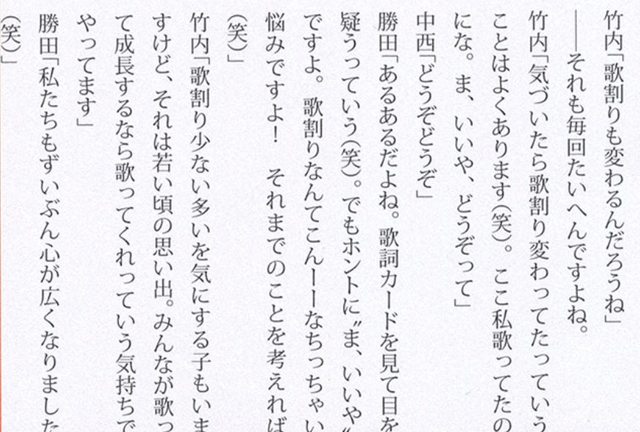 竹内「歌割りも変わるんだろうね」
――それも毎回たいへんですよね。
竹内「気づいたら歌割り変わってたっていう
ことはよくあります（笑）。ここ私歌ってたの
にな。ま、いいや、どうぞって」
中西「どうぞどうぞ」
勝田「あるあるだよね。歌詞カードを見て目を
疑うっていう（笑）。でもホントに〝ま、いいや〟
ですよ。歌割りなんてこんーーなちっちゃい
悩みですよ！　それまでのことを考えれば
（笑）」
竹内「歌割り少ない多いを気にする子もいま
すけど、それは若い頃の思い出。みんなが歌っ
て成長するなら歌ってくれっていう気持ちで
やってます」
勝田「私たちもずいぶん心が広くなりました
（笑）」